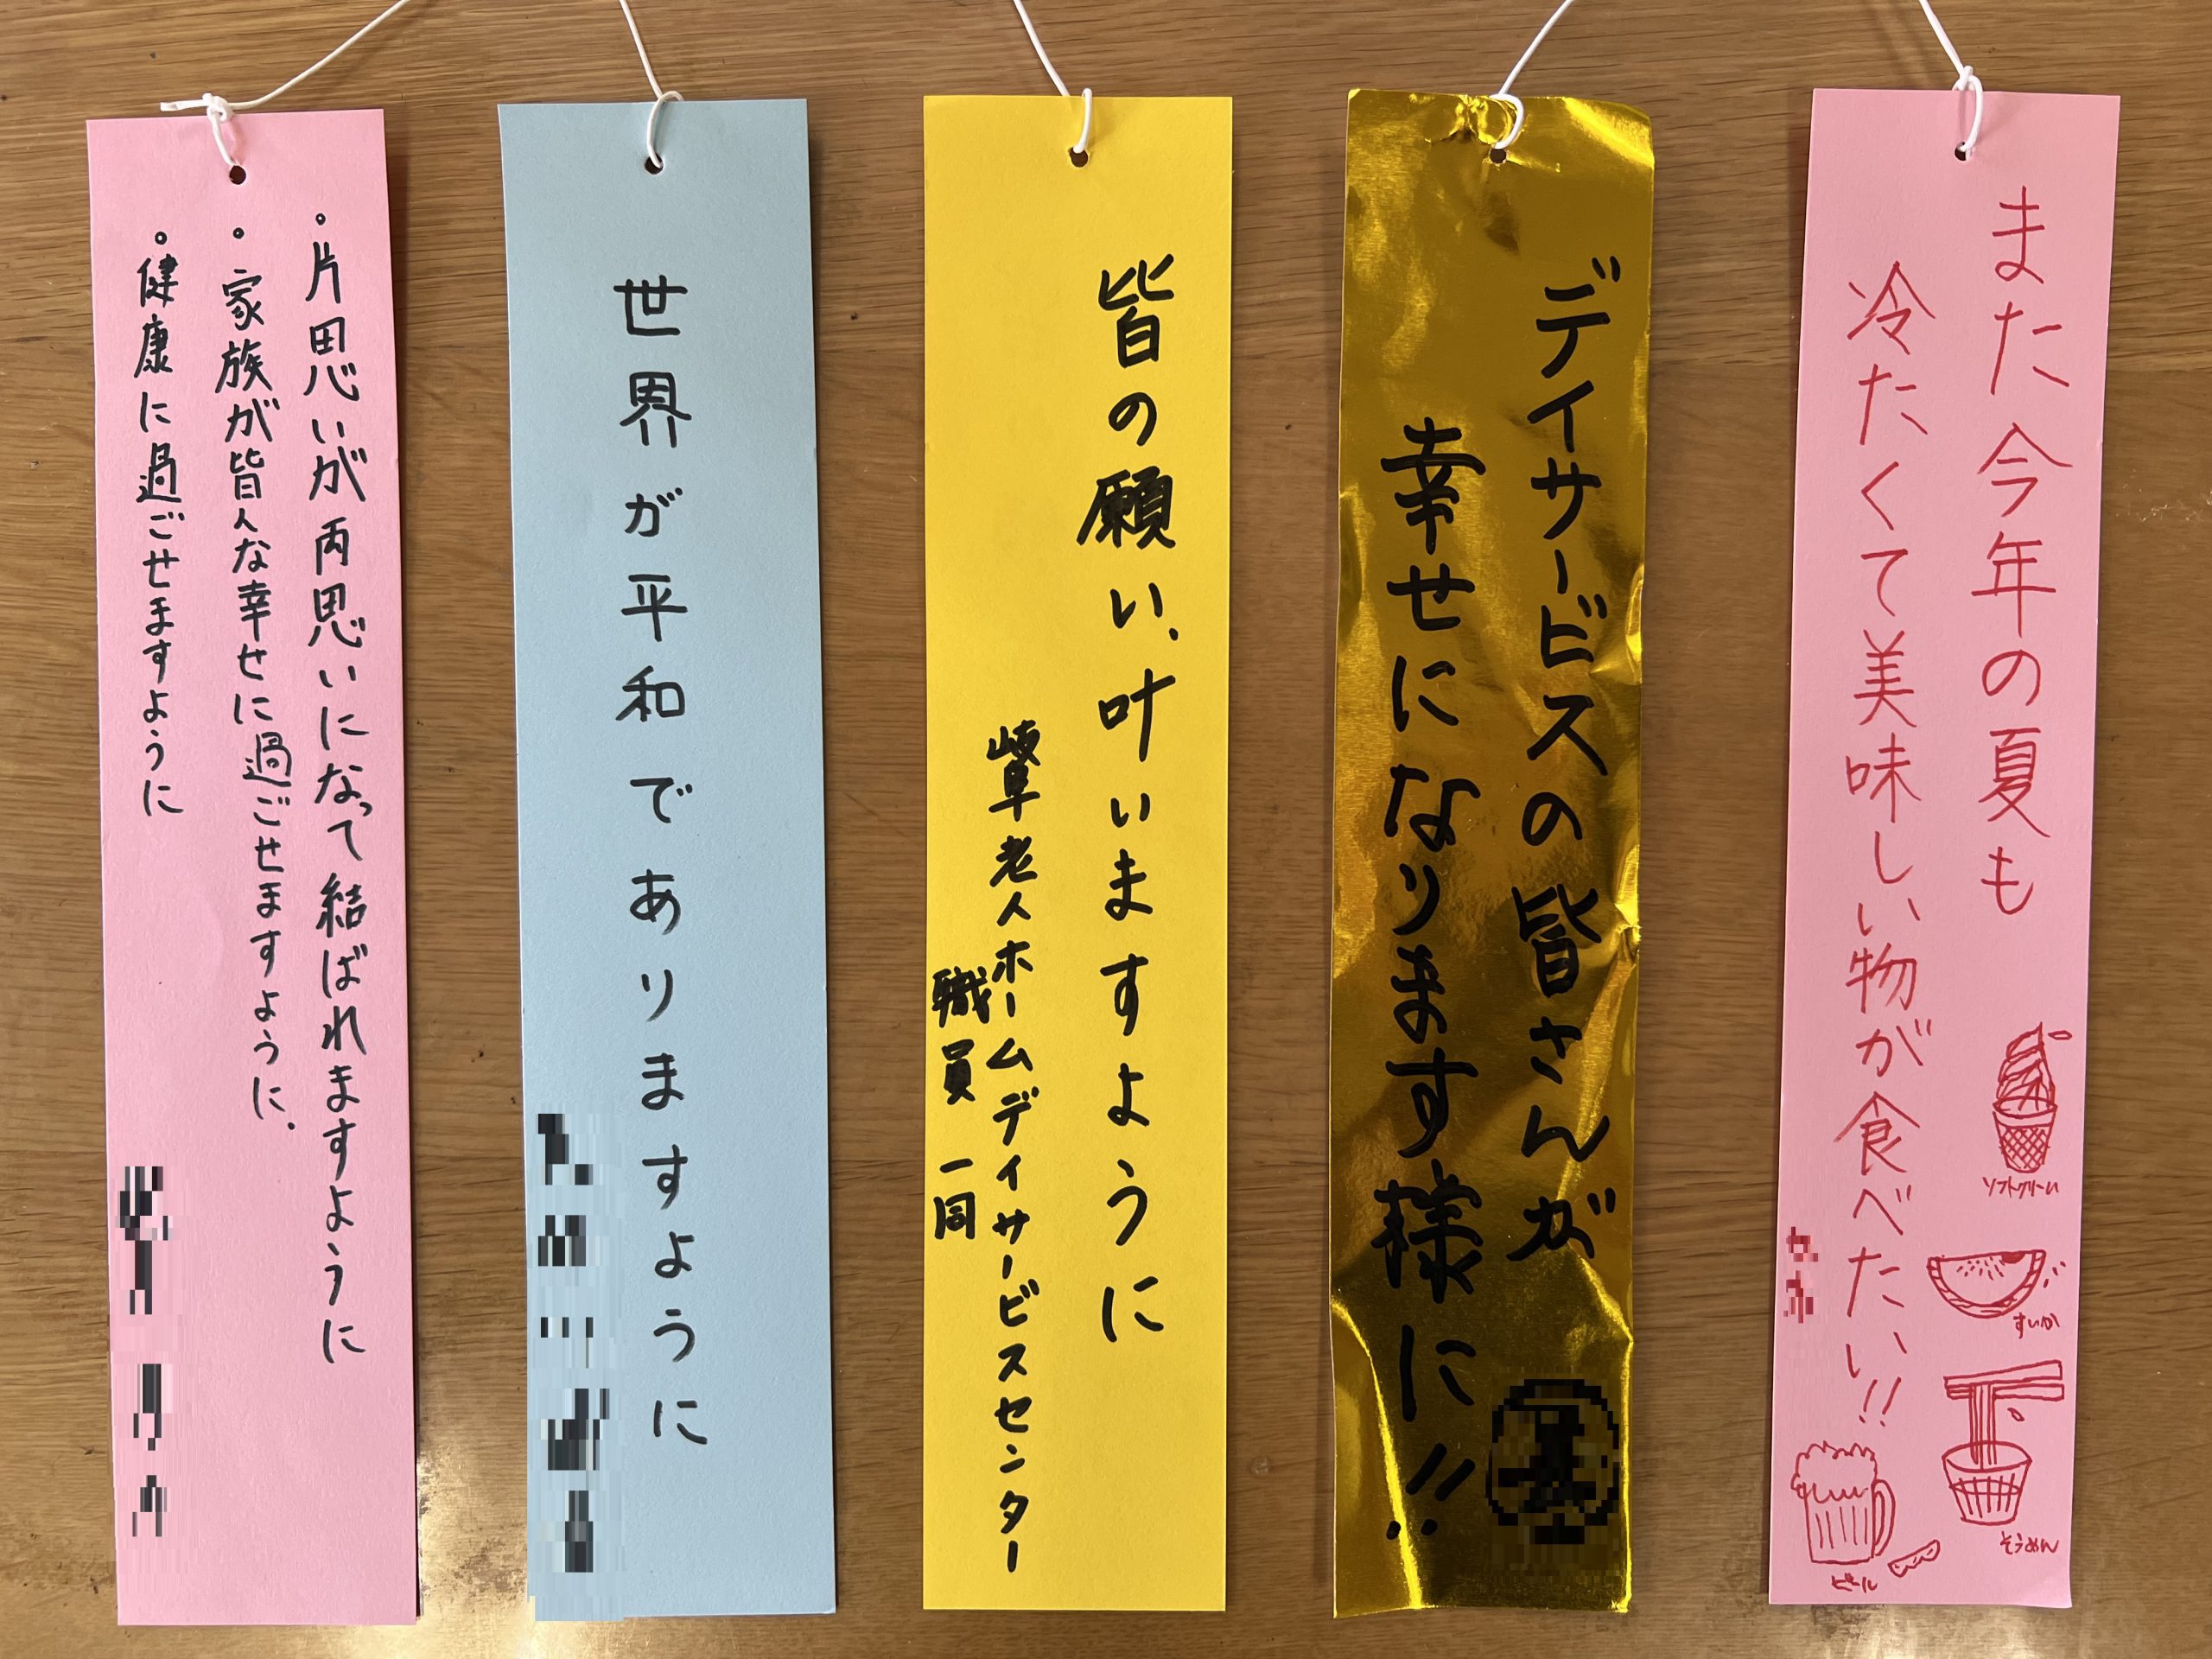 ・片思いが両思いになって結ばれますように
・家族が皆んな幸せに過ごせますように.
・健康に過ごせますように
世界が平和でありますように
皆の願い、叶いますように
岐阜老人ホームデイサービスセンター
職員一同
デイサービスの皆さんが
幸せになります様に!!
また今年の夏も
冷たくて美味しい物が食べたい!!
ソフトクリーム
すいか
そうめん
ビール